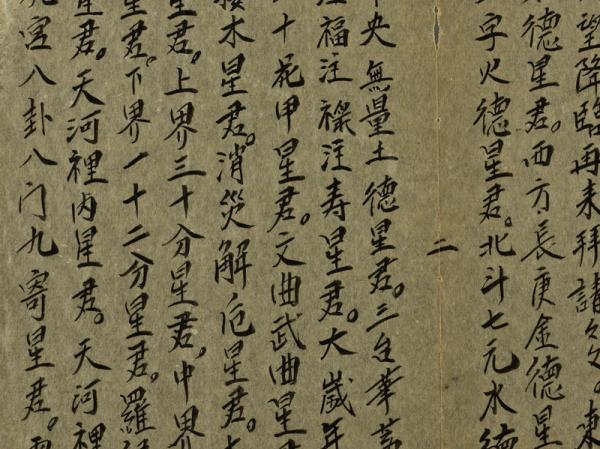 望降臨再来拜請々々。東
德星君。西方長庚金德星
字火德星君。北斗七元水德
二
中央無量土德星君。三台華蓋
注福注祿注寿星君。大歲年
十花甲星君。文曲武曲星君
木星君。消災解厄星君。
星君。上界三十分星君。中界
星君。下界一十二分星君。羅
星君。天河裡内星君。天河裡
宫八卦八门九寄星君。